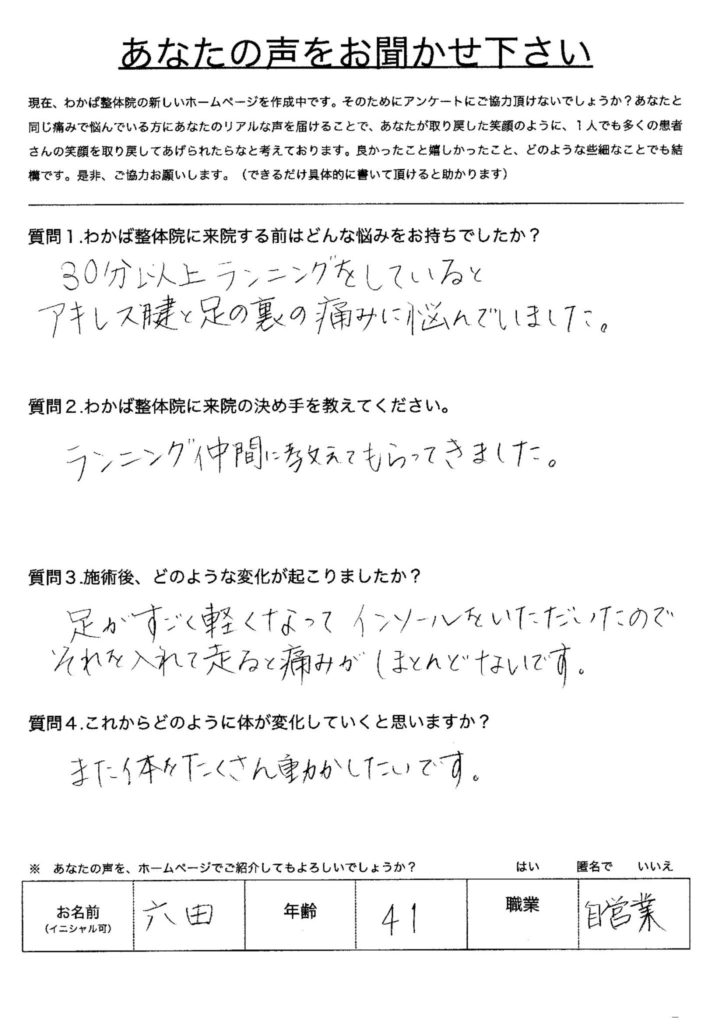 あなたの声をお聞かせ下さい
現在、わかば整体院の新しいホームページを作成中です。そのためにアンケートにご協力頂けないでしょうか？あなたと
同じ痛みで悩んでいる方にあなたのリアルな声を届けることで、あなたが取り戻した笑顔のように、１人でも多くの患者
さんの笑顔を取り戻してあげられたらなと考えております。良かったこと嬉しかったこと、どのような些細なことでも結
構です。是非、ご協力お願いします。（できるだけ具体的に書いて頂けると助かります）
質問１.わかば整体院に来院する前はどんな悩みをお持ちでしたか？
30分以上ランニングをしていると
アキレス腱と足の裏の痛みに悩んでいました。
質問２.わかば整体院に来院の決め手を教えてください。
ランニング仲間に教えてもらってきました。
質問３.施術後、どのような変化が起こりましたか？
足がすごく軽くなって インソールをいただいたので
それを入れて走ると痛みがほとんどないです。
質問４.これからどのように体が変化していくと思いますか？
また体をたくさん動かしたいです。
※　あなたの声を、ホームページでご紹介してもよろしいでしょうか？　はい　匿名で　いいえ
お名前 六田 年齢 41 職業 自営業
（イニシャル可）